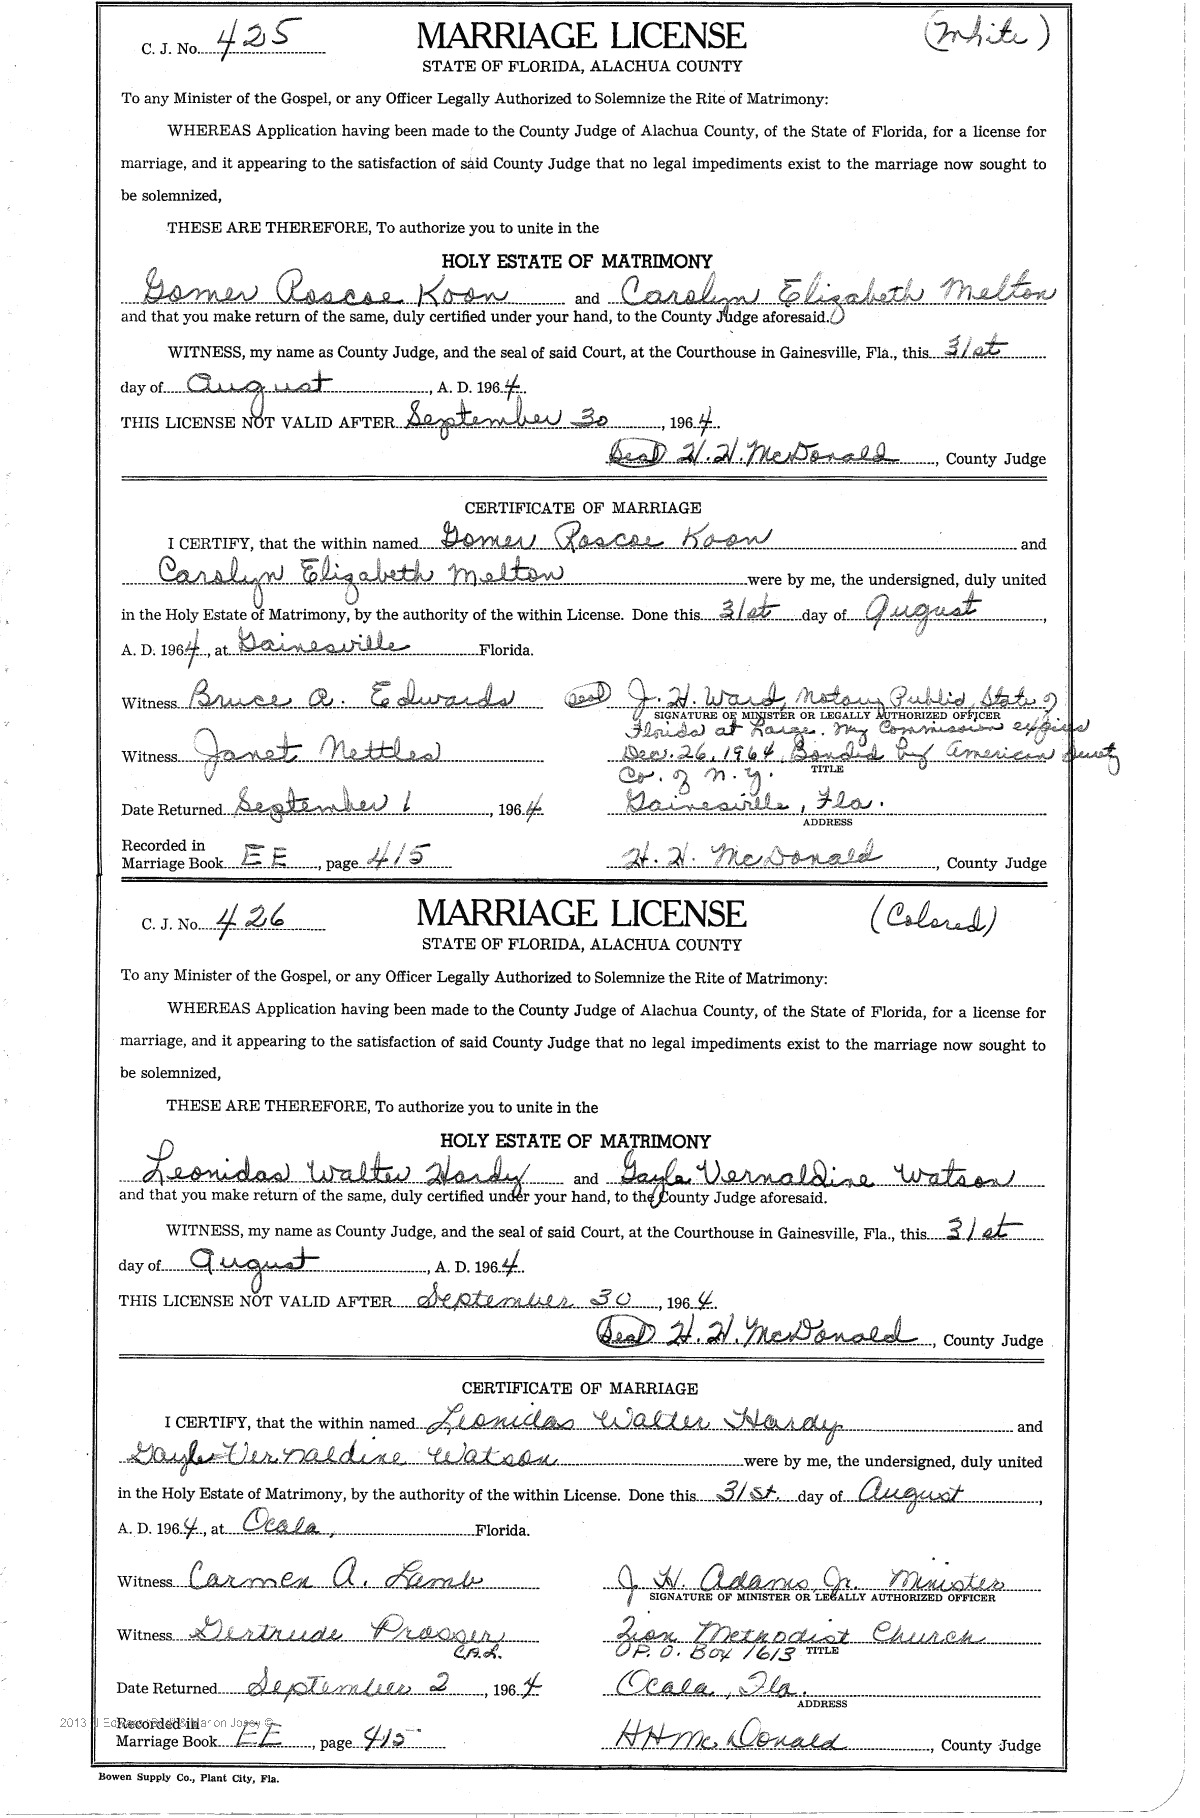 C. J. No. 425 MARRIAGE LICENSE (White)
STATE OF FLORIDA, ALACHUA COUNTY
To any Minister of the Gospel, or any Officer Legally Authorized to Solemnize the Rite of Matrimony:
WHEREAS Application having been made to the County Judge of Alachua County, of the State of Florida, for a license for
marriage, and it appearing to the satisfaction of said County Judge that no legal impediments exist to the marriage now sought to
be solemnized,
THESE ARE THEREFORE, To authorize you to unite in the
HOLY ESTATE OF MATRIMONY
Gomer Roscoe Koon and Carolyn Elizabeth Melton
and that you make return of the same, duly certified under your hand, to the County Judge aforesaid.
WITNESS, my name as County Judge, and the seal of said Court, at the Courthouse in Gainesville, Fla., this 31st
day of August, A. D. 1964.
THIS LICENSE NOT VALID AFTER September 30, 1964.
(Seal) H. H. McDonald, County Judge
CERTIFICATE OF MARRIAGE
I CERTIFY, that the within named Gomer Roscoe Koon and
Carolyn Elizabeth Melton were by me, the undersigned, duly united
in the Holy Estate of Matrimony, by the authority of the within License. Done this 31st day of August,
A. D. 1964, at Gainesville Florida.
Witness Bruce A. Edwards (Seal) J. H. Ward, Notary Public, State of
SIGNATURE OF MINISTER OR LEGALLY AUTHORIZED OFFICER
Florida at Large. My Commission expires
Witness Janet Nettles Dec. 26, 1964. Bonded by American Surety
Co. of N. Y. TITLE
Date Returned September 1, 1964 Gainesville, Fla.
ADDRESS
Recorded in
Marriage Book EE, page 415 H. H. McDonald, County Judge
C. J. No. 426 MARRIAGE LICENSE (Colored)
STATE OF FLORIDA, ALACHUA COUNTY
To any Minister of the Gospel, or any Officer Legally Authorized to Solemnize the Rite of Matrimony:
WHEREAS Application having been made to the County Judge of Alachua County, of the State of Florida, for a license for
marriage, and it appearing to the satisfaction of said County Judge that no legal impediments exist to the marriage now sought to
be solemnized,
THESE ARE THEREFORE, To authorize you to unite in the
HOLY ESTATE OF MATRIMONY
Leonidas Walter Hardy and Gayle Vernaldine Watson
and that you make return of the same, duly certified under your hand, to the County Judge aforesaid.
WITNESS, my name as County Judge, and the seal of said Court, at the Courthouse in Gainesville, Fla., this 31st
day of August, A. D. 1964.
THIS LICENSE NOT VALID AFTER September 30, 1964.
(Seal) H. H. McDonald, County Judge
CERTIFICATE OF MARRIAGE
I CERTIFY, that the within named Leonidas Walter Hardy and
Gayle Vernaldine Watson were by me, the undersigned, duly united
in the Holy Estate of Matrimony, by the authority of the within License. Done this 31st. day of August,
A. D. 1964, at Ocala, Florida.
Witness Carmen A. Lamb J H. Adams, Jr. Minister
SIGNATURE OF MINISTER OR LEGALLY AUTHORIZED OFFICER
Witness Gertrude Prosser Zion Methodist Church
C.A.L. P. O. Box 1613 TITLE
Date Returned September 2, 1964 Ocala, Fla.
ADDRESS
Recorded in
Marriage Book EE, page 415 H H McDonald, County Judge
Bowen Supply Co., Plant City, Fla.